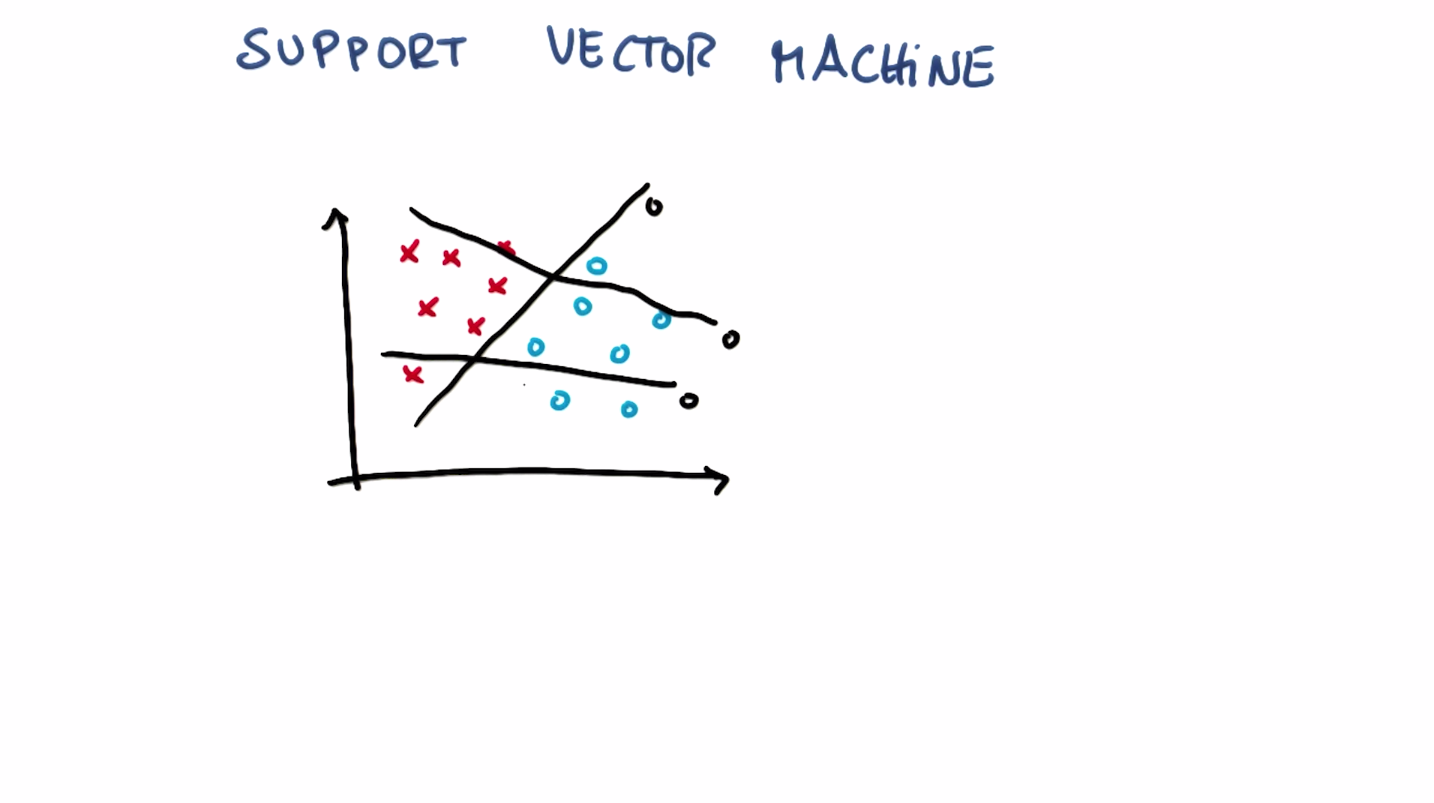 SUPPORT VECTOR MACHINE